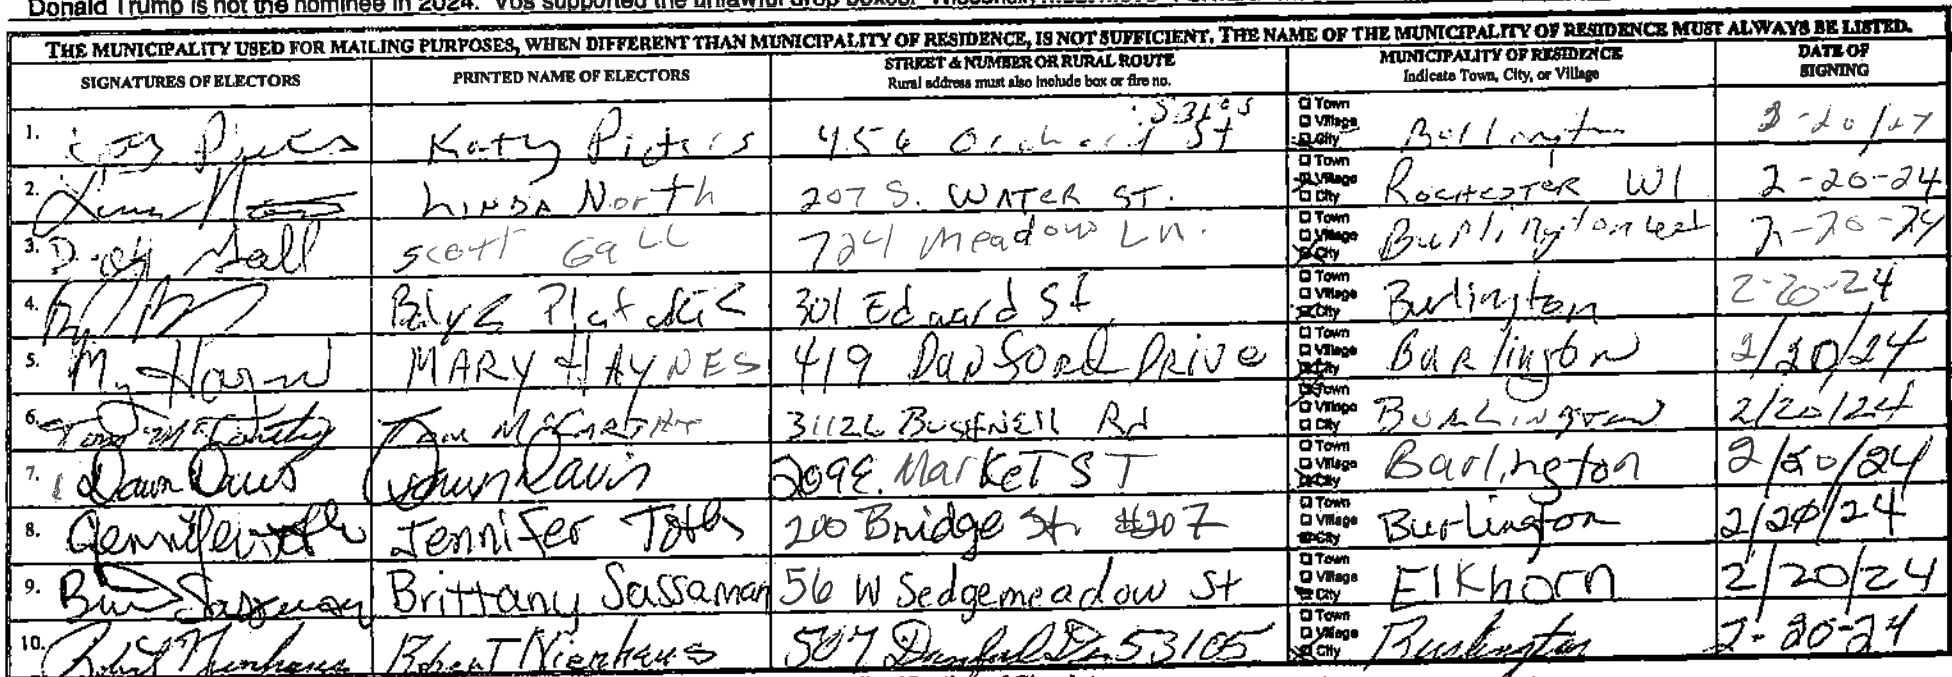 Donald Trump is not the nominee in 2024. Vos supported the unlawful drop boxes.
THE MUNICIPALITY USED FOR MAILING PURPOSES, WHEN DIFFERENT THAN MUNICIPALITY OF RESIDENCE, IS NOT SUFFICIENT. THE NAME OF THE MUNICIPALITY OF RESIDENCE MUST ALWAYS BE LISTED.
SIGNATURES OF ELECTORS PRINTED NAME OF ELECTORS STREET & NUMBER OR RURAL ROUTE MUNICIPALITY OF RESIDENCE DATE OF SIGNING
Rural address must also include box or fire no. Indicate Town, City, or Village
1. Katy 456 Orchard St Town Village City
2. LINDA North 207 S. WATER ST. Town Village City ROCHESTER WI 2-20-24
3. Gall SCOTT GALL 724 Meadow Ln. Town Village City 2-20-24
4. 301 Edward St Town Village City Burlington 2-20-24
5. MARY HAYNES 419 DRIVE Town Village City Burlington 2/20/24
6. Tom McCarthy Tom 31126 BUSHNELL Rd Town Village City BURLINGTON 2/20/24
7. Dawn Davis Dawn Davis 209 E. Market ST Town Village City Burlington 2/20/24
8. Jennifer Jennifer 200 Bridge St. #207 Town Village City Burlington 2/20/24
9. Brittany Sassaman 56 W Sedgemeadow St Town Village City Elkhorn 2/20/24
10. Robert Nienhaus Robert Nienhaus 507 53105 Town Village City Burlington 2-20-24